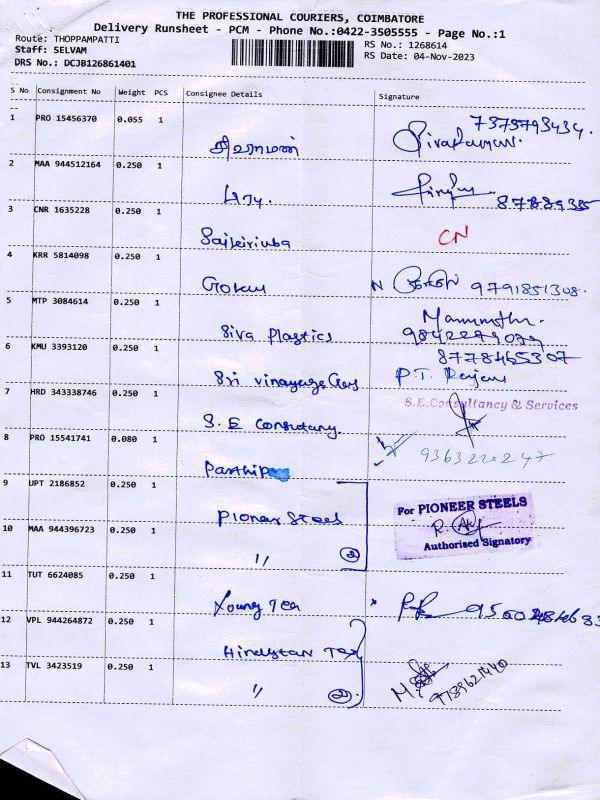 THE PROFESSIONAL COURIERS, COIMBATORE
Delivery Runsheet - PCM - Phone No.:0422-3505555 - Page No.:1
Route: THOPPAMPATTI
Staff: SELVAM
DRS No.: DCJB126861401
RS No.: 1268614
RS Date: 04-Nov-2023
S No Consignment No Weight PCS Consignee Details Signature
1 PRO 15456370 0.055 1
7373793434.
சிவராமன்
2 MAA 944512164 0.250 1
3 CNR 1635228 0.250 1
CN
4 KRR 5814098 0.250 1
Gokul
9791851308.
5 MTP 3084614 0.250 1
Siva Plastics
9842279079
6 KMU 3393120 0.250 1
8778465307
Sri Vinayaga Gas
P.T.
7 HRD 343338746 0.250 1
S.E.Consultancy & Services
S. E Consultancy
8 PRO 15541741 0.080 1
9363220247
9 UPT 2186852 0.250 1
Pioner Steels
For PIONEER STEELS
10 MAA 944396723 0.250 1
Authorised Signatory
" 2
11 TUT 6624085 0.250 1
Young Tex
12 VPL 944264872 0.250 1
Hindustan Tex
13 TVL 3423519 0.250 1
" 2
9789621440